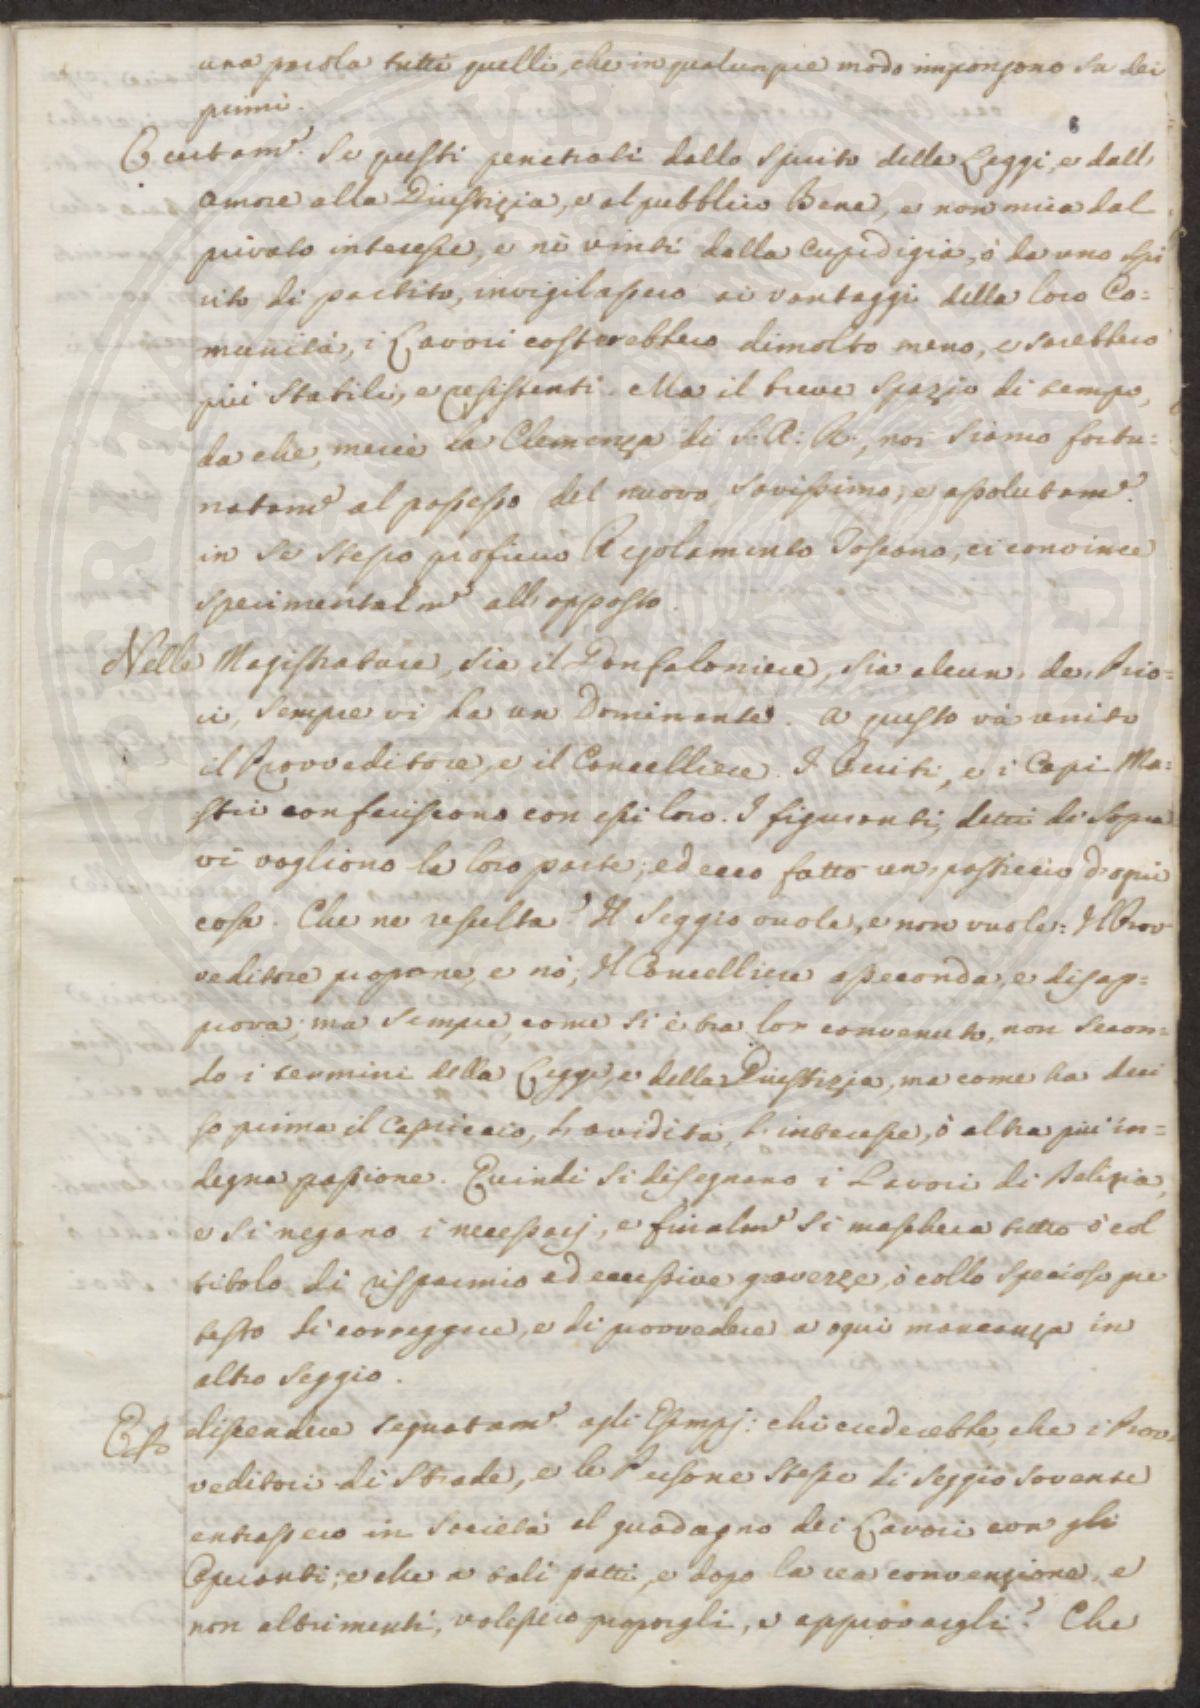 una parola tutti quelli, che in qualunque modo impongono su dei
primi.
Certam.e Se questi penetrati dallo Spirito della Leggi, e dall'
Amore alla Giustizia, e al pubblico Bene, e non mica dal
privato interesse, e nè vinti dalla cupidigia, ò da uno spi
rito di partito, invigilassero ai vantaggi della loro Co=
munità, i Lavori costarebbero dimolto meno, e sarebbero
più Stabili, e resistenti. Ma il breve Spazio di tempo,
da che, mercè la Clemenza di S: A: R:, noi siamo fortu=
natam.e al possesso del nuovo Savissimo, e assolutam.e
in Se Stesso proficuo Regolamento Toscano, ci convince
sperimentalm.e all'opposto.
Nelle Magistrature, sia il Gonfaloniere, sia alcun' de' Prio=
ri, sempre vi ha un Dominante. A questo và unito
il Provveditore, e il Cancelliere. I Periti, e i Capi Ma=
stri conferiscono con essi loro. I figuranti, detti di Sopra
vi vogliono la loro parte; ed ecco fatto un' pasticcio d'ogni
cosa. Che ne resulta? Il Seggio vuole, e non vuole: Il Prov
veditore propone, e nò; Il Cancelliere asseconda, e disap=
prova; ma sempre, come si è tra lor convenuto, non Secon=
do i termini della Legge, e della Giustizia, ma come ha deci
so prima il Capriccio, l'avidità, l'interesse, ò altra più in=
degna passione. Quindi si disegnano i Lavori di Delizia,
e si negano i necessarj, e finalm.e si maschera tutto ò col
titolo di risparmio ad eccessive gravezze, ò collo specioso pre
testo di correggere, e di provvedere a ogni mancanza in
altro Seggio.
E p discendere segnatam.e agli Esempj: chi crederebbe, che i Prov=
veditori di Strade, e le Persone Stesse di Seggio sovente
entrassero in Società al guadagno dei Lavori con gli
Operanti; e che a tali patti, e dopo la rea convenzione, e
non altrimenti, volessero proporgli, e approvargli? Che